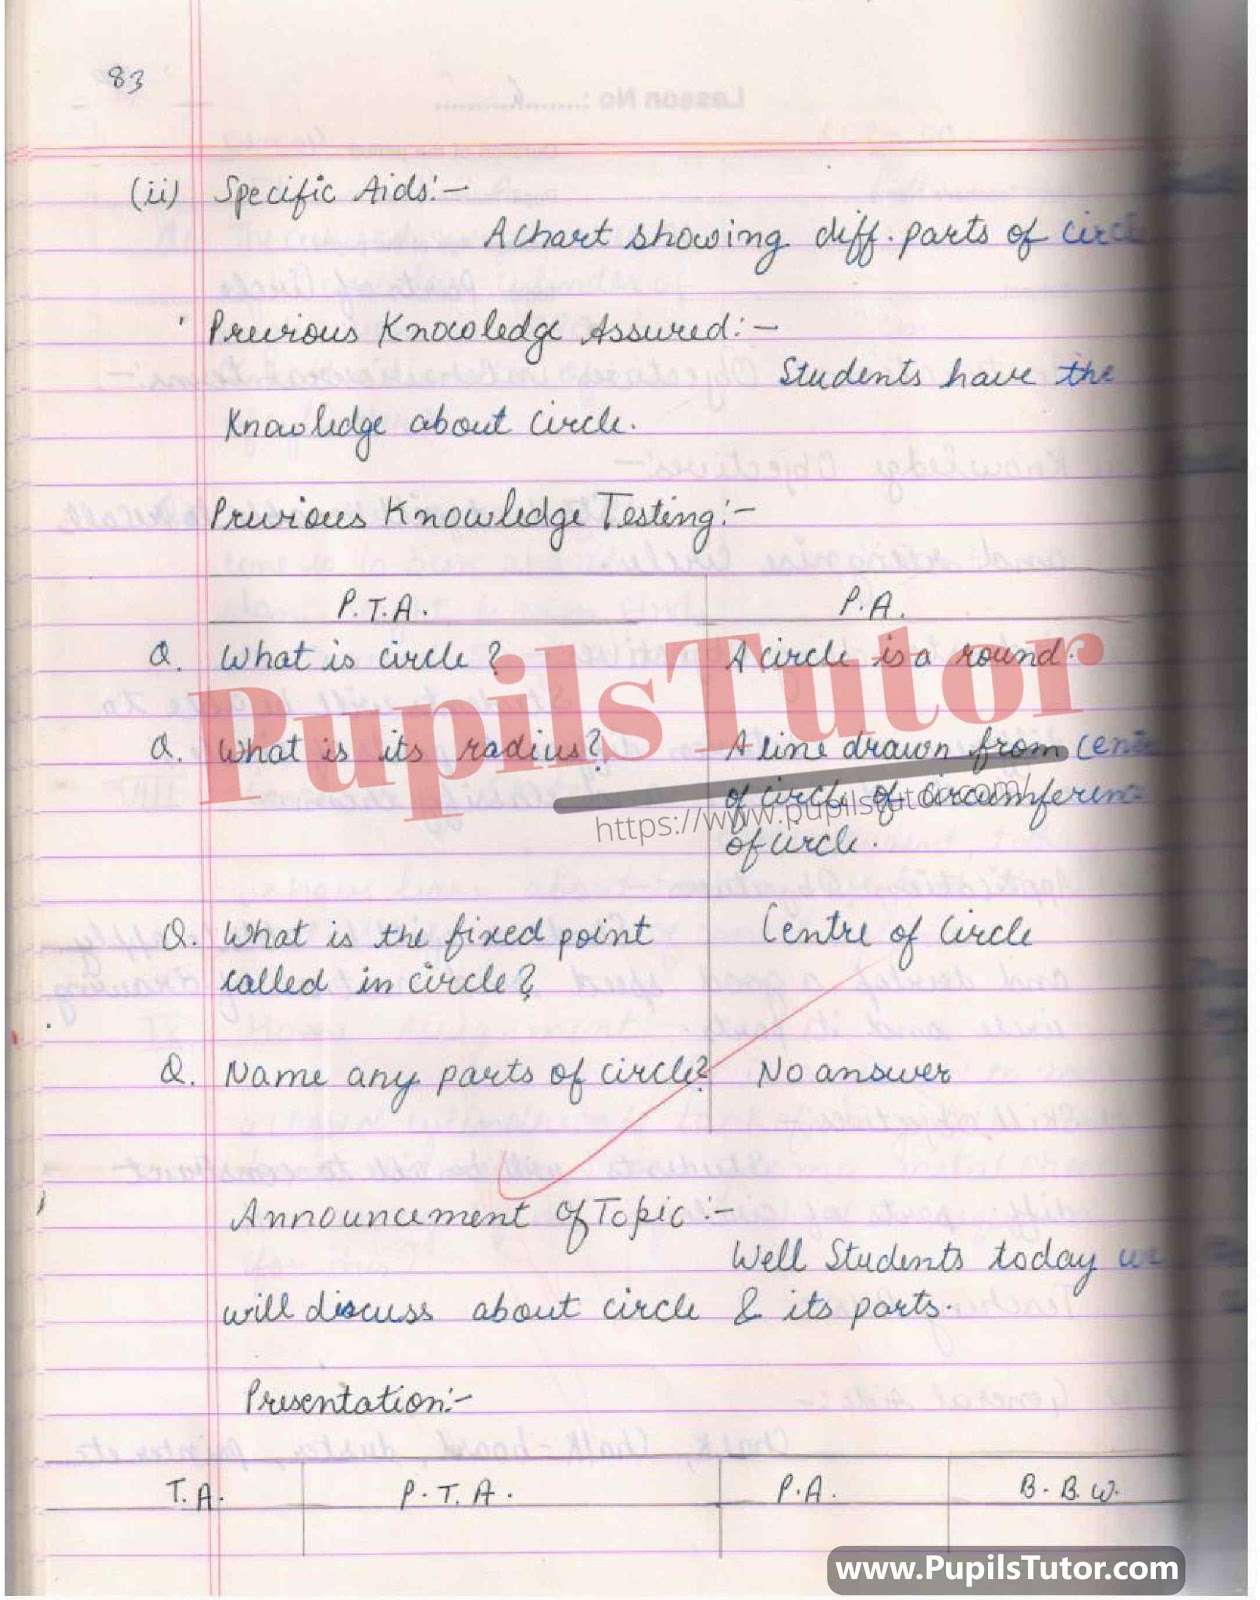 83
(ii) Specific Aids:-
A chart showing diff. parts of circle
Previous Knowledge Assured:-
Students have the
Knowledge about circle.
Previous Knowledge Testing:-
P.T.A. P.A.
Q. What is circle? A circle is a round.
Q. What is its radius? A line drawn from Centre
of circle of circumference
of circle.
Q. What is the fixed point Centre of Circle
called in circle?
Q. Name any parts of circle? No answer
Announcement of Topic:-
Well Students today we
will discuss about circle & its parts.
Presentation:-
T.A. P.T.A. P.A. B.B.W.
PupilsTutor
https://www.pupilstutor.com/
www.PupilsTutor.com